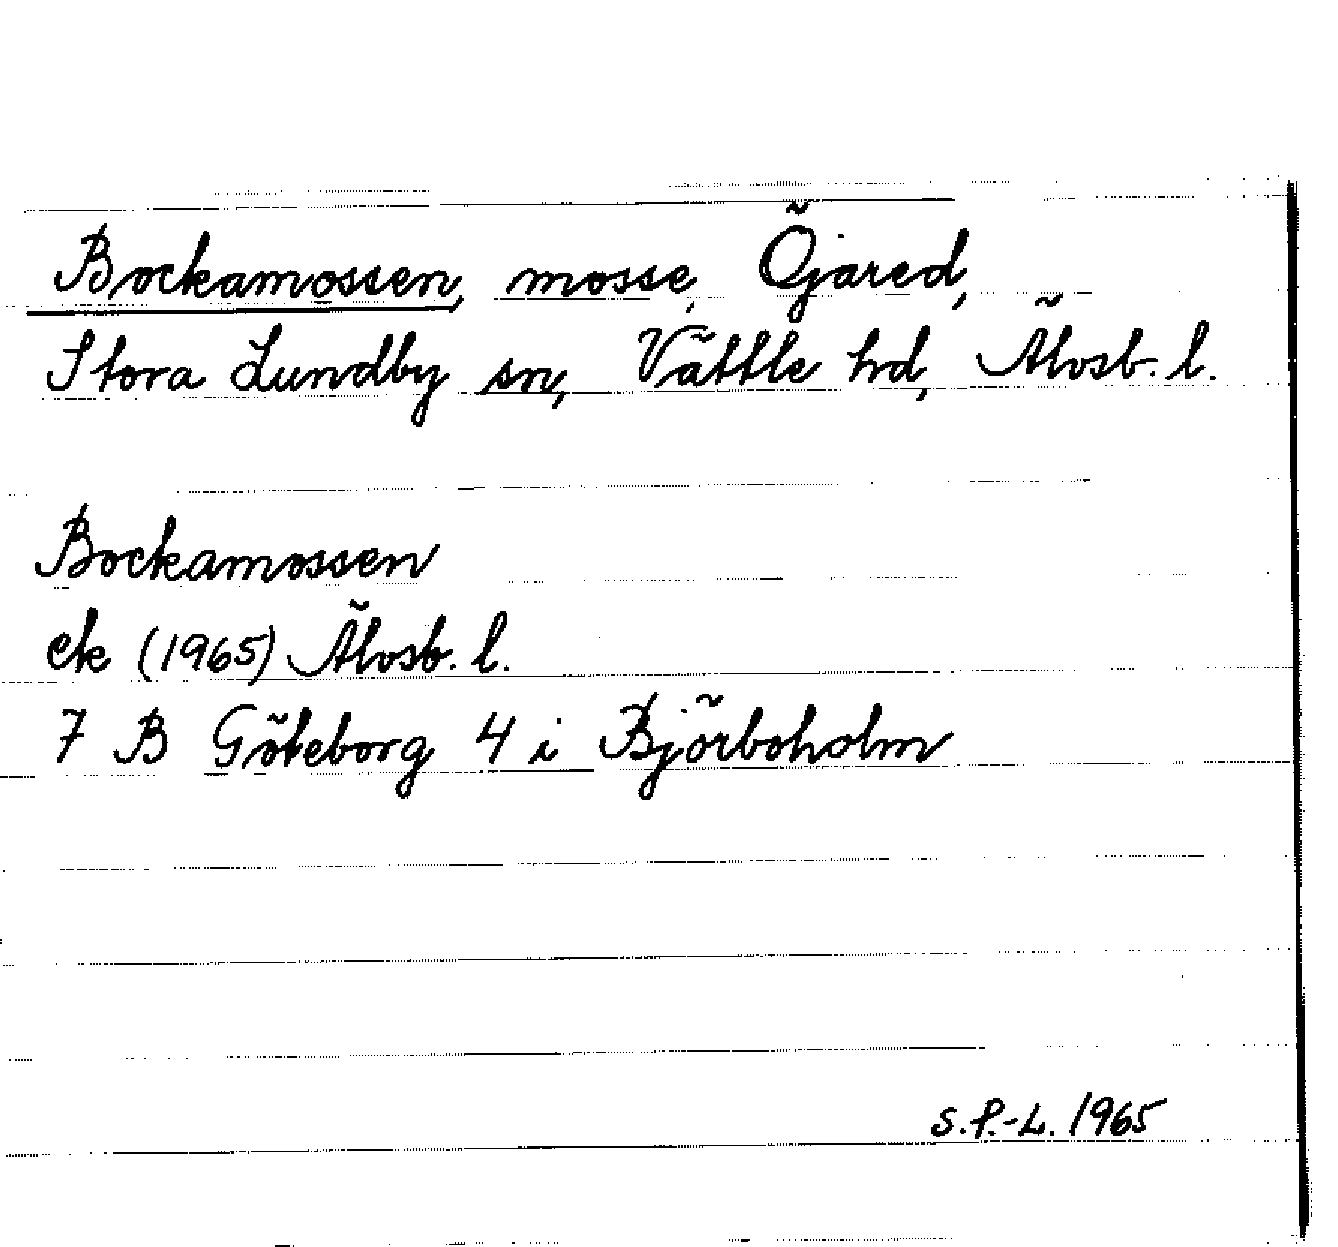 Bockamossen, mosse, Öjared,
Stora Lundby sn, Vättle hd, Älvsb. l.
Bockamossen
ek (1965) Älvsb. l.
7 B Göteborg 4 i Björboholm
S.P.-L. 1965